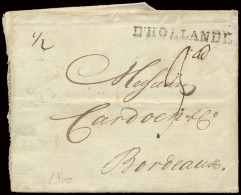 1/2
D'HOLLANDE
Messieurs
Cardoch & Co
Bordeaux